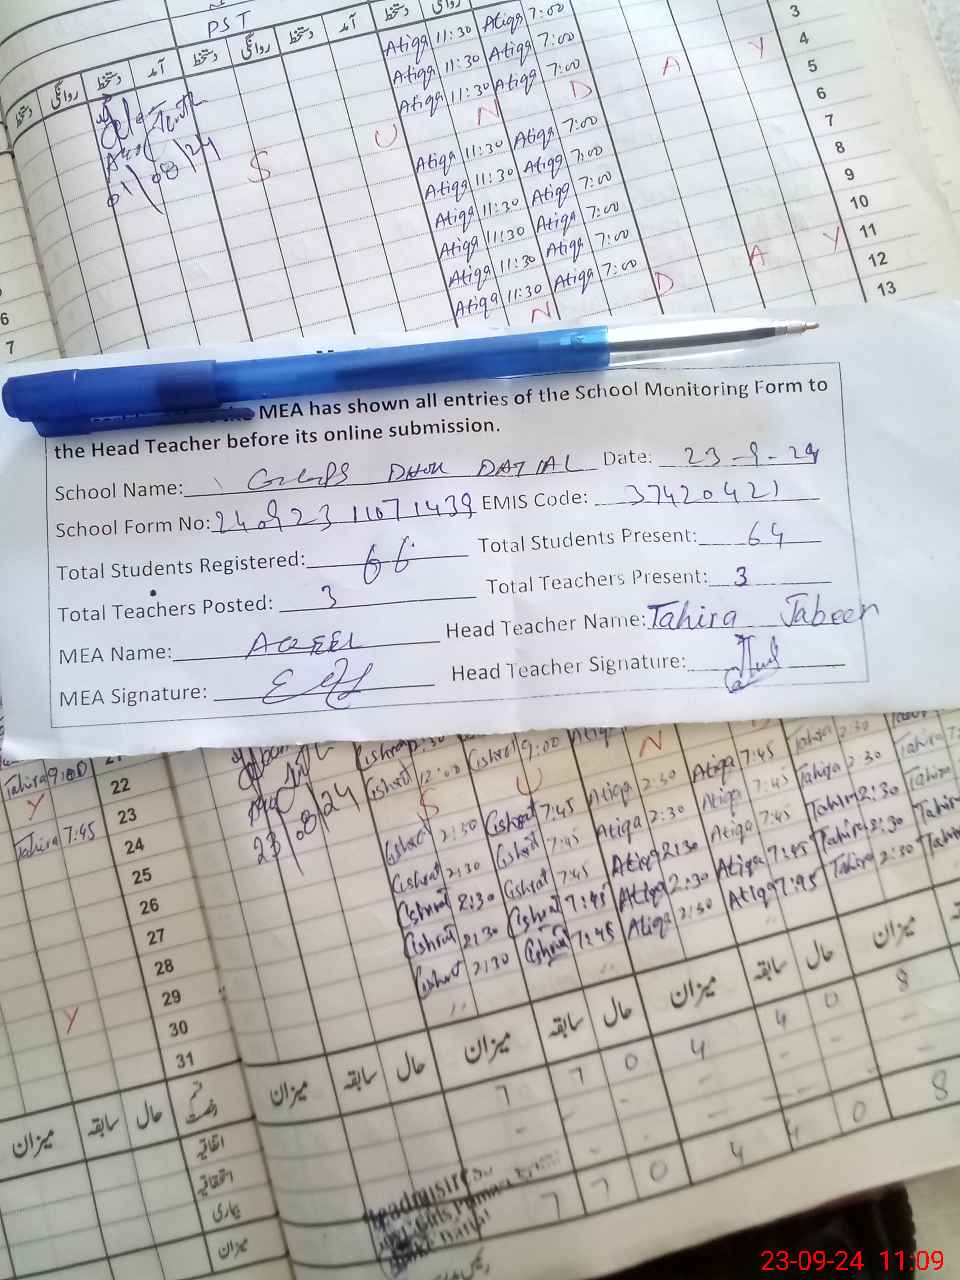 PST
دستخط روانگی دستخط آمد دستخط روانگی دستخط آمد دستخط روانگی
Atiqa 11:30 Atiqa 7:00 3
Atiqa 11:30 Atiqa 7:00 4
Atiqa 11:30 Atiqa 7:00 5
S U N D A Y 6
Atiqa 11:30 Atiqa 7:00 7
Atiqa 11:30 Atiqa 7:00 8
Atiqa 11:30 Atiqa 7:00 9
Atiqa 11:30 Atiqa 7:00 10
Atiqa 11:30 Atiqa 7:00 11
Atiqa 11:30 Atiqa 7:00 12
N D A Y 13
01/08/24
6
7
MEA has shown all entries of the School Monitoring Form to
the Head Teacher before its online submission.
School Name: GGPS DHOK DATIAL Date: 23-9-24
School Form No: 240923 11071439 EMIS Code: 37420421
Total Students Registered: 66 Total Students Present: 64
Total Teachers Posted: 3 Total Teachers Present: 3
MEA Name: AQEEL Head Teacher Name: Tahira Jabeen
MEA Signature: Head Teacher Signature:
Tahira 9:00 21
Y 22
Tahira 7:45 23
24
25
26
27
28
29
Y 30
31
23/08/24
Cishrat 12:00 Cishrat 9:00 Atiqa
S U N
Cishrat 2:30 Cishrat 7:45 Atiqa 2:30 Atiqa 7:45 Tahira 2:30
Cishrat 2:30 Cishrat 7:45 Atiqa 2:30 Atiqa 7:45 Tahira 2:30 Tahira
Cishrat 2:30 Cishrat 7:45 Atiqa 2:30 Atiqa 7:45 Tahira 2:30 Tahira
Cishrat 2:30 Cishrat 7:45 Atiqa 2:30 Atiqa 7:45 Tahira 2:30 Tahira
Cishrat 2:30 Cishrat 7:45 Atiqa 2:30 Atiqa 7:45 Tahira 2:30 Tahira
میزان سابقہ حال میزان سابقہ حال میزان سابقہ حال میزان
7 7 0 4 4 0 8
7 7 0 4 4 0 8
میزان سابقہ حال قسم رخصت
اتفاقیہ
استحقاقیہ
بیماری
میزان
Headmistress
23-09-24 11:09